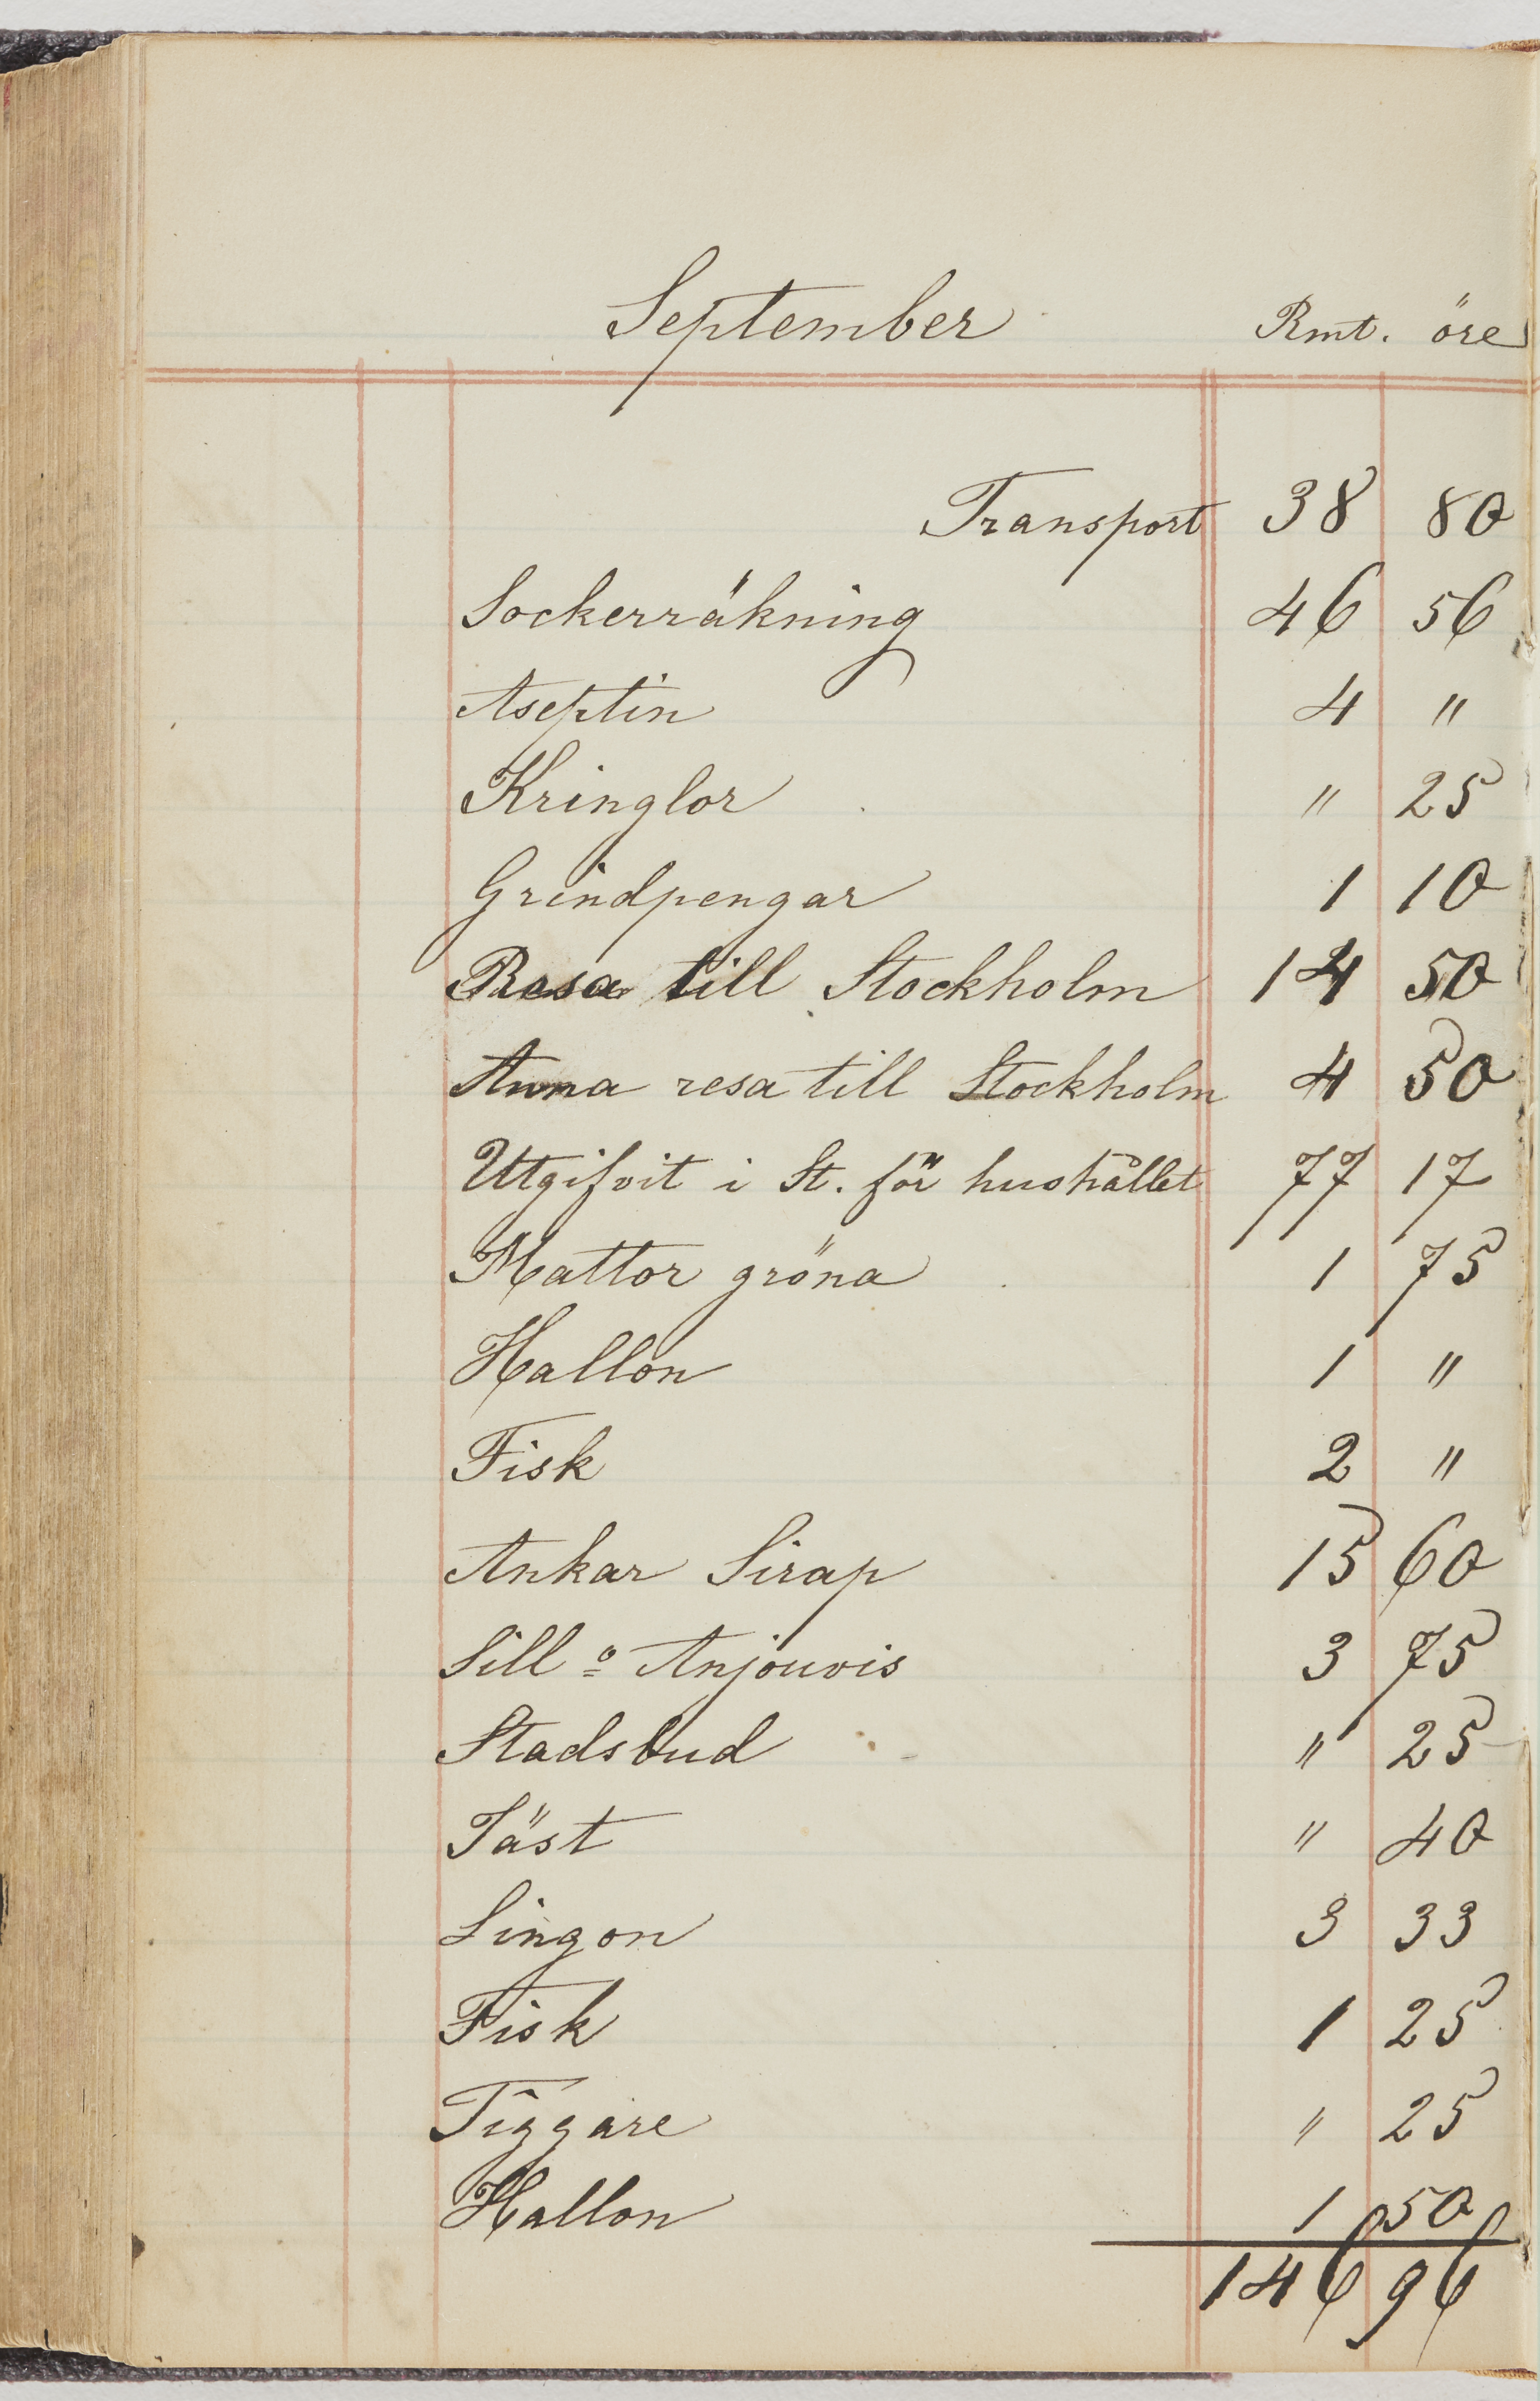 September Rmt. öre
Transport 38 80
Sockerräkning 46 56
Aseptin 4 "
Kringlor " 25
Grindpengar 1 10
Resa till Stockholm 14 50
Anna resa till Stockholm 4 50
Utgifvit i St. för hushållet 77 17
Mattor gröna 1 75
Hallon 1 "
Fisk 2 "
Ankar Sirap 15 60
Sill o Anjouvis 3 75
Stadsbud " 25
Jäst " 40
Lingon 3 33
Fisk 1 25
Tiggare " 25
Hallon 1 50
146 96